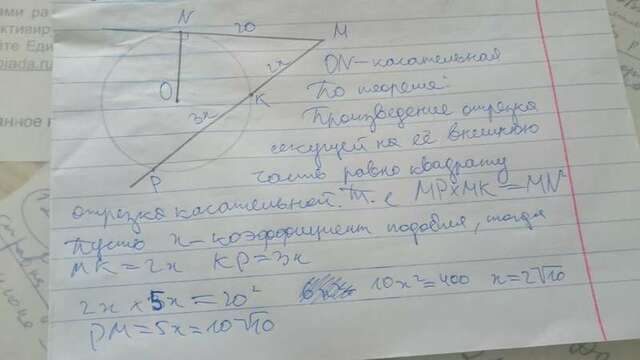 ами ра
активир
йте Еди
piada.ru
анное
N
20
M
2x
O
K
3x
P
ON-касательная
По теореме:
Произведение отрезка
секущей на её внешнюю
часть равно квадрату
отрезка касательной. Т. е MP×MK=MN²
Пусть x-коэффициент подобия, тогда
MK=2x KP=3x
2x × 5x = 20² 10x²=400 x=2√10
PM=5x=10√10